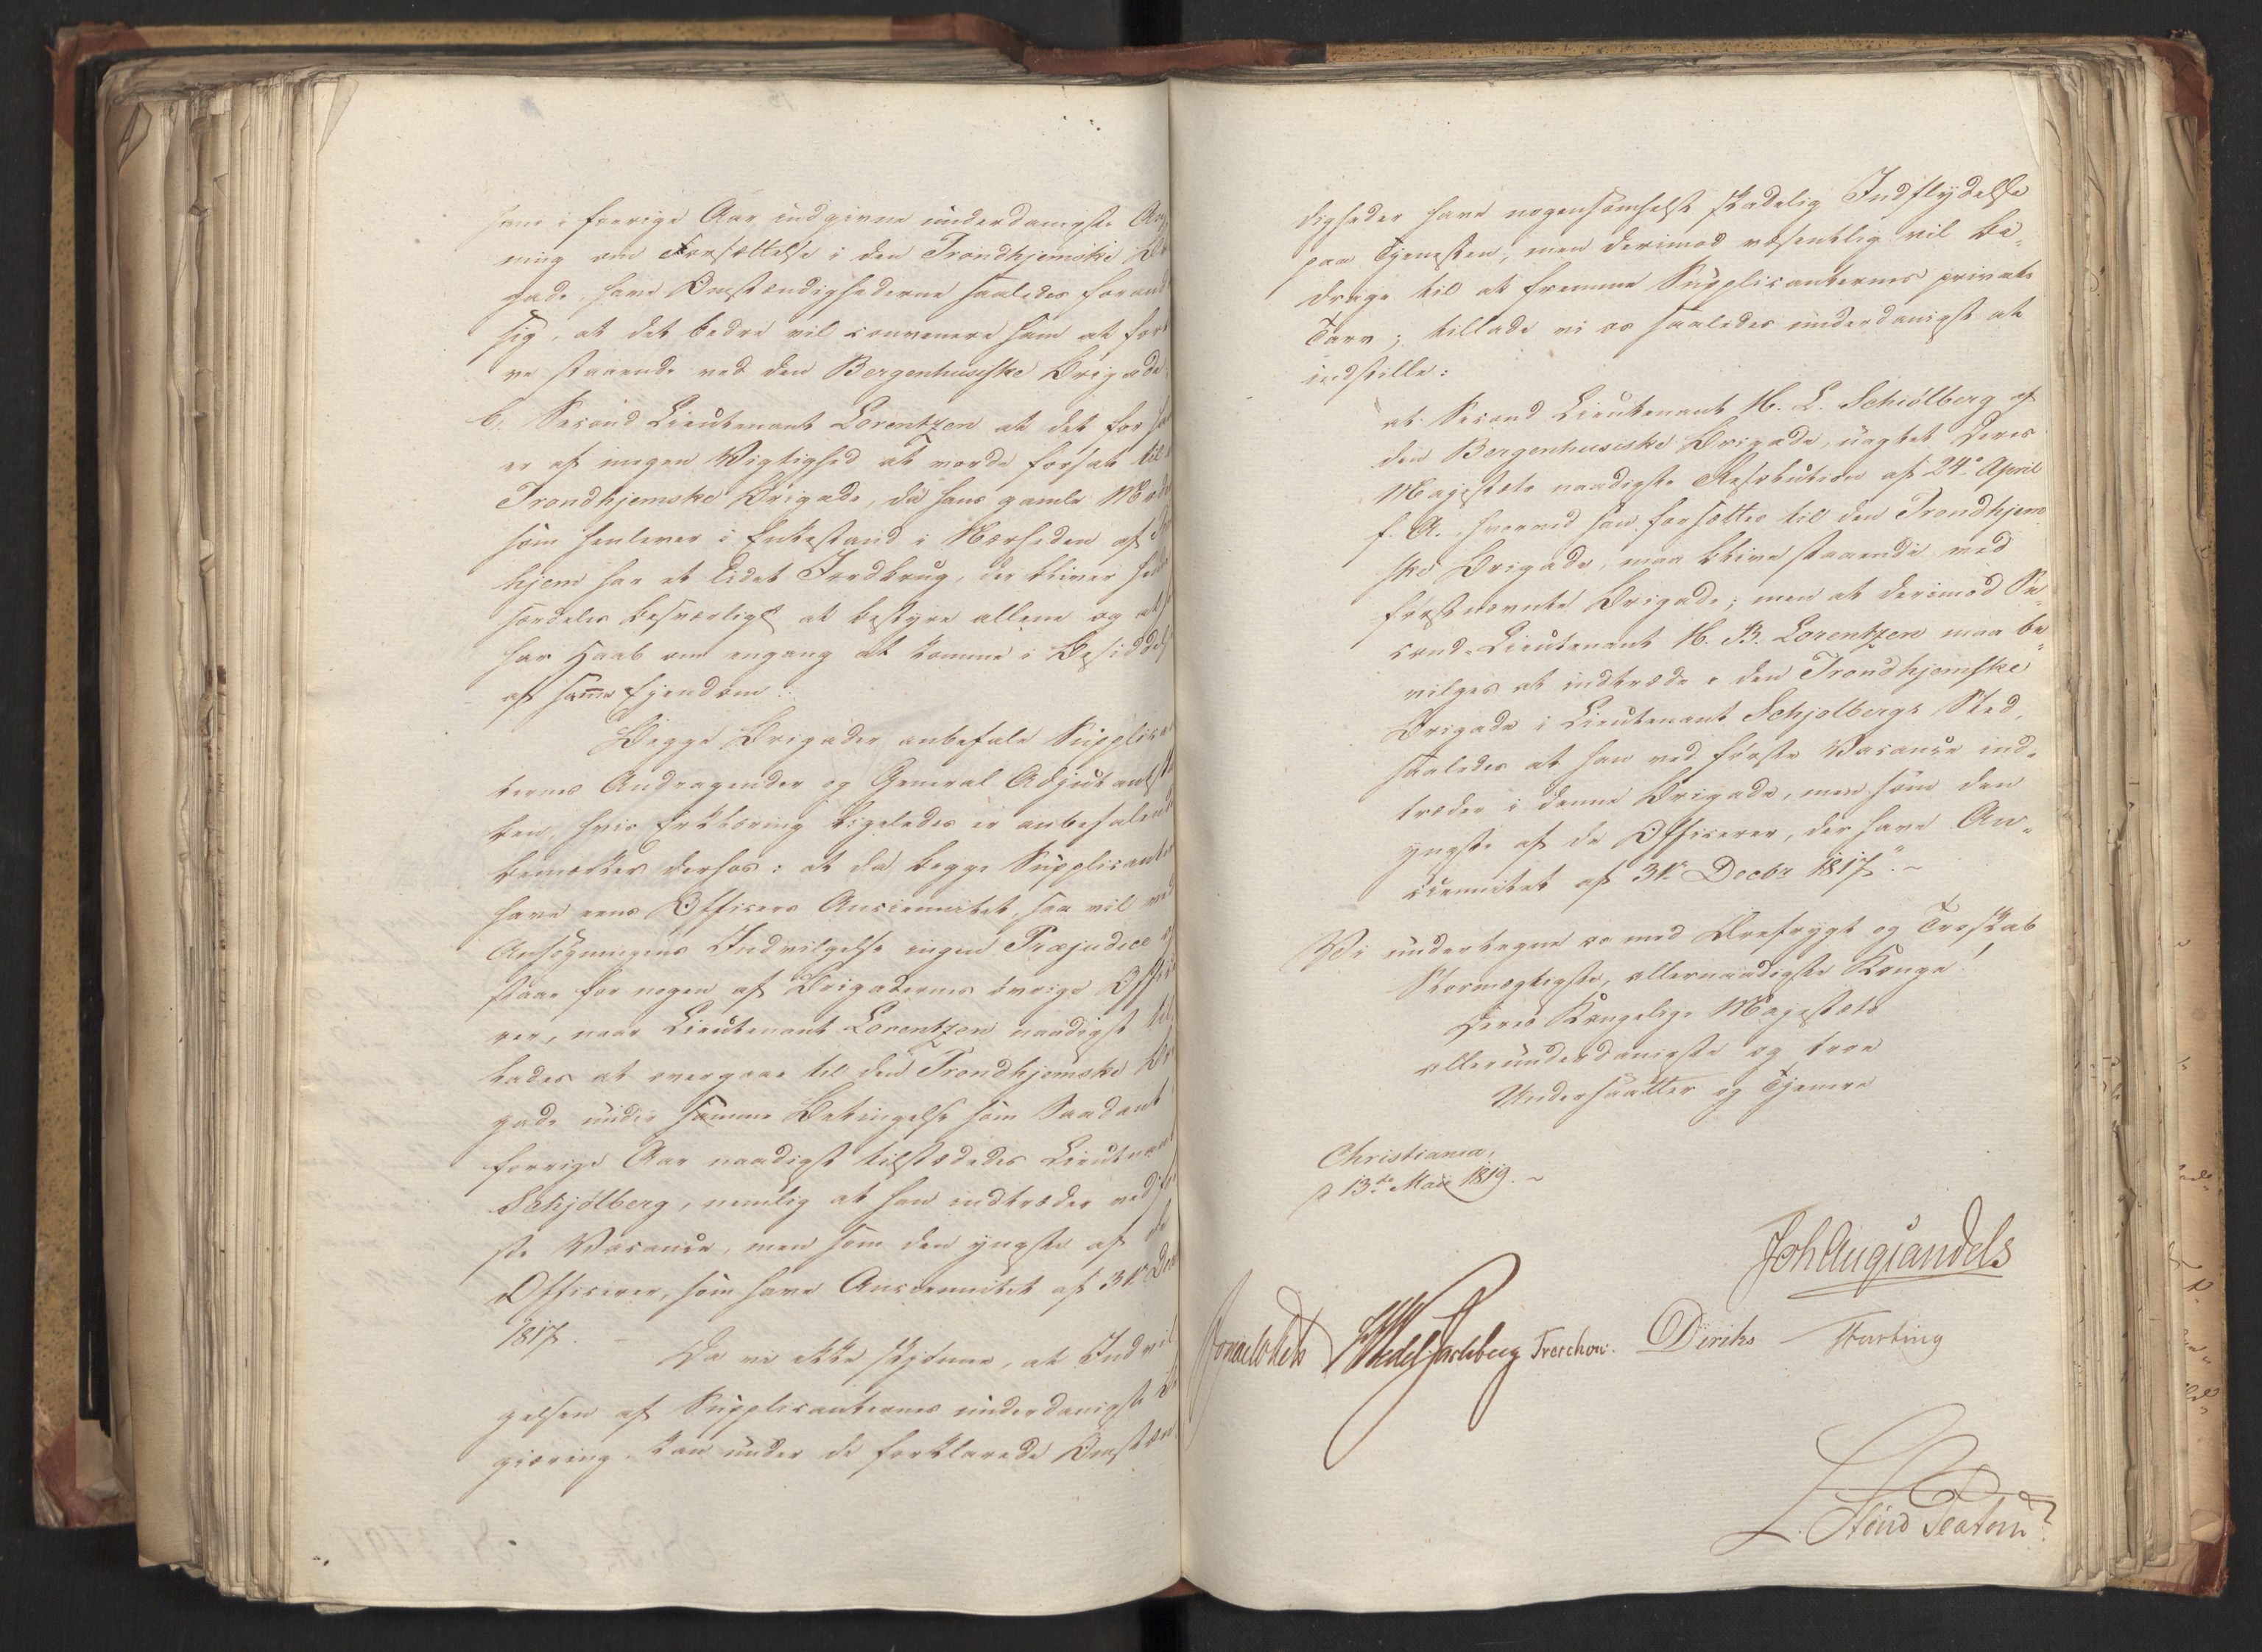 som i forrige Aar indgivne underdanigste Ansøg
ning om Forsættelse i den Trondhjemske Bri
gade, have Omstændighederne saaledes forand
sig, at det bedre vil convenere ham at for
ve staaende ved den Bergenhusiske Brigade;
b, Second Lieutenant Lorentzen at det for ham
er af megen Vigtighed at vorde forsat til
Trondhjemske Brigade, da hans gamle Moder
som henlever i Enkestand i Nærheden af Trond
hjem har et lidet Jordbrug, der bliver hende
særdeles besværligt at bestyre allene og at han
har Haab om engang at komme i Besiddelse
af samme Ejendom.
Begge Brigader anbefale Supplican
ternes Andragender og General Adjutantsta
ben, hvis Erklæring ligeledes er anbefalende
bemærker derhos: at da begge Supplicanter
have eens Officers Anciennitet, saa vil ved
Ansøgningens Indvilgelse ingen Præjudice op
staae for nogen af Brigadernes øvrige Offici
rer, naar Lieutenant Lorentzen naadigst til
lades at overgaae til den Trondhjemske Bri
gade under samme Betingelse som Saadant
forrige Aar naadigst tilstædedes Lieutenant
Schjølberg, nemlig at han indtræder ved før
ste Vacance, men som den yngste af de
Officirer, som have Anciennitet af 31te Decbr
1817. –
Da vi ikke skjønne, at Indvil
gelsen af Supplicanternes underdanigste Be
gjæring, kan under de forklarede Omstæn
digheder have nogensomhelst skadelig Indflydelse
paa Tjenesten, men derimod væsentlig vil bi„
drage til at fremme Supplicanternes private
Tarv; tillade vi os saaledes underdanigst at
indstille:
at Second Lieutenant H. L. Schiølberg af
den Bergenhusiske Brigade, uagtet Deres
Majestæts naadigste Resolution af 24de April
f. A., hvorved han forsættes til den Trondhjem
ske Brigade, maa blive staaende ved
førstnævnte Brigade; men at derimod Se„
cond-Lieutenant H. B. Lorentzen maa be„
vilges at indtræde i den Trondhjemske
Brigade i Lieutenant Schjølbergs Sted,
saaledes at han ved første Vacance ind„
træder i denne Brigade, men som den
yngste af de Officerer, der have An„
ciennitet af 31te Decbr 1817." –
Vi undertegne os med Ærefrygt og Troskab
Stormægtigste, allernaadigste Konge!
Deres Kongelige Majestæts
allerunderdanigste og troe
Undersaatter og Tjenere
Christiania,
d 13de Maii 1819. –
Joh Aug Sandels
Sommerhielm Wedel Jarlsberg Treschow. Diriks Fasting
L. Stoud Platou